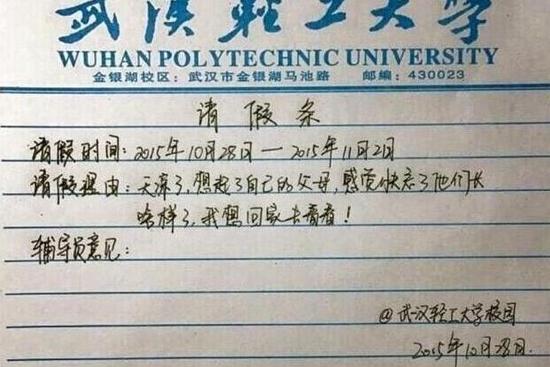 武汉轻工大学
WUHAN POLYTECHNIC UNIVERSITY
金银湖校区：武汉市金银湖马池路 邮编：430023
请假条
请假时间：2015年10月28日—2015年11月2日
请假理由：天凉了，想起了自己的父母，感觉快忘了他们长
啥样了，我想回家去看看！
辅导员意见：
@武汉轻工大学校园
2015年10月28日.